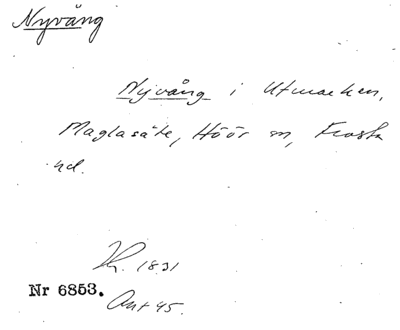 Nyvång
Nyvång i Utmarken,
Maglasäte, Höör sn, Frosta
hd.
Kr. 1831
Nr 6853.
Ant 45.